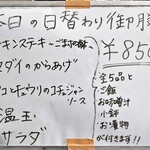 本日の日替わり御膳
チキンステキ ~ごまか酢~
マダイのからあげ
コとギウリのコチュジャン
ソース
温玉
サラダ
¥850
全5品と
ご飯
お味噌汁
小鉢
お漬物
が付きます!!